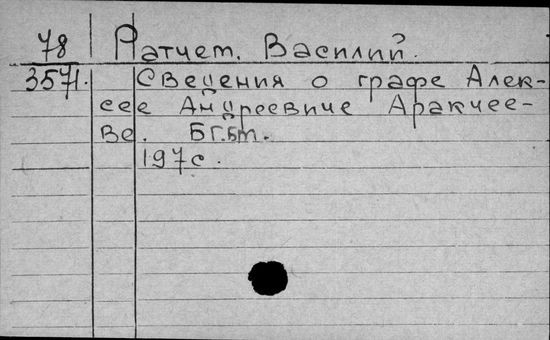 78 Ратчет. Василий.
3571. Сведения о графе Алек-
сее Андреевиче Аракчее-
ве. Бг.бт.
197с.